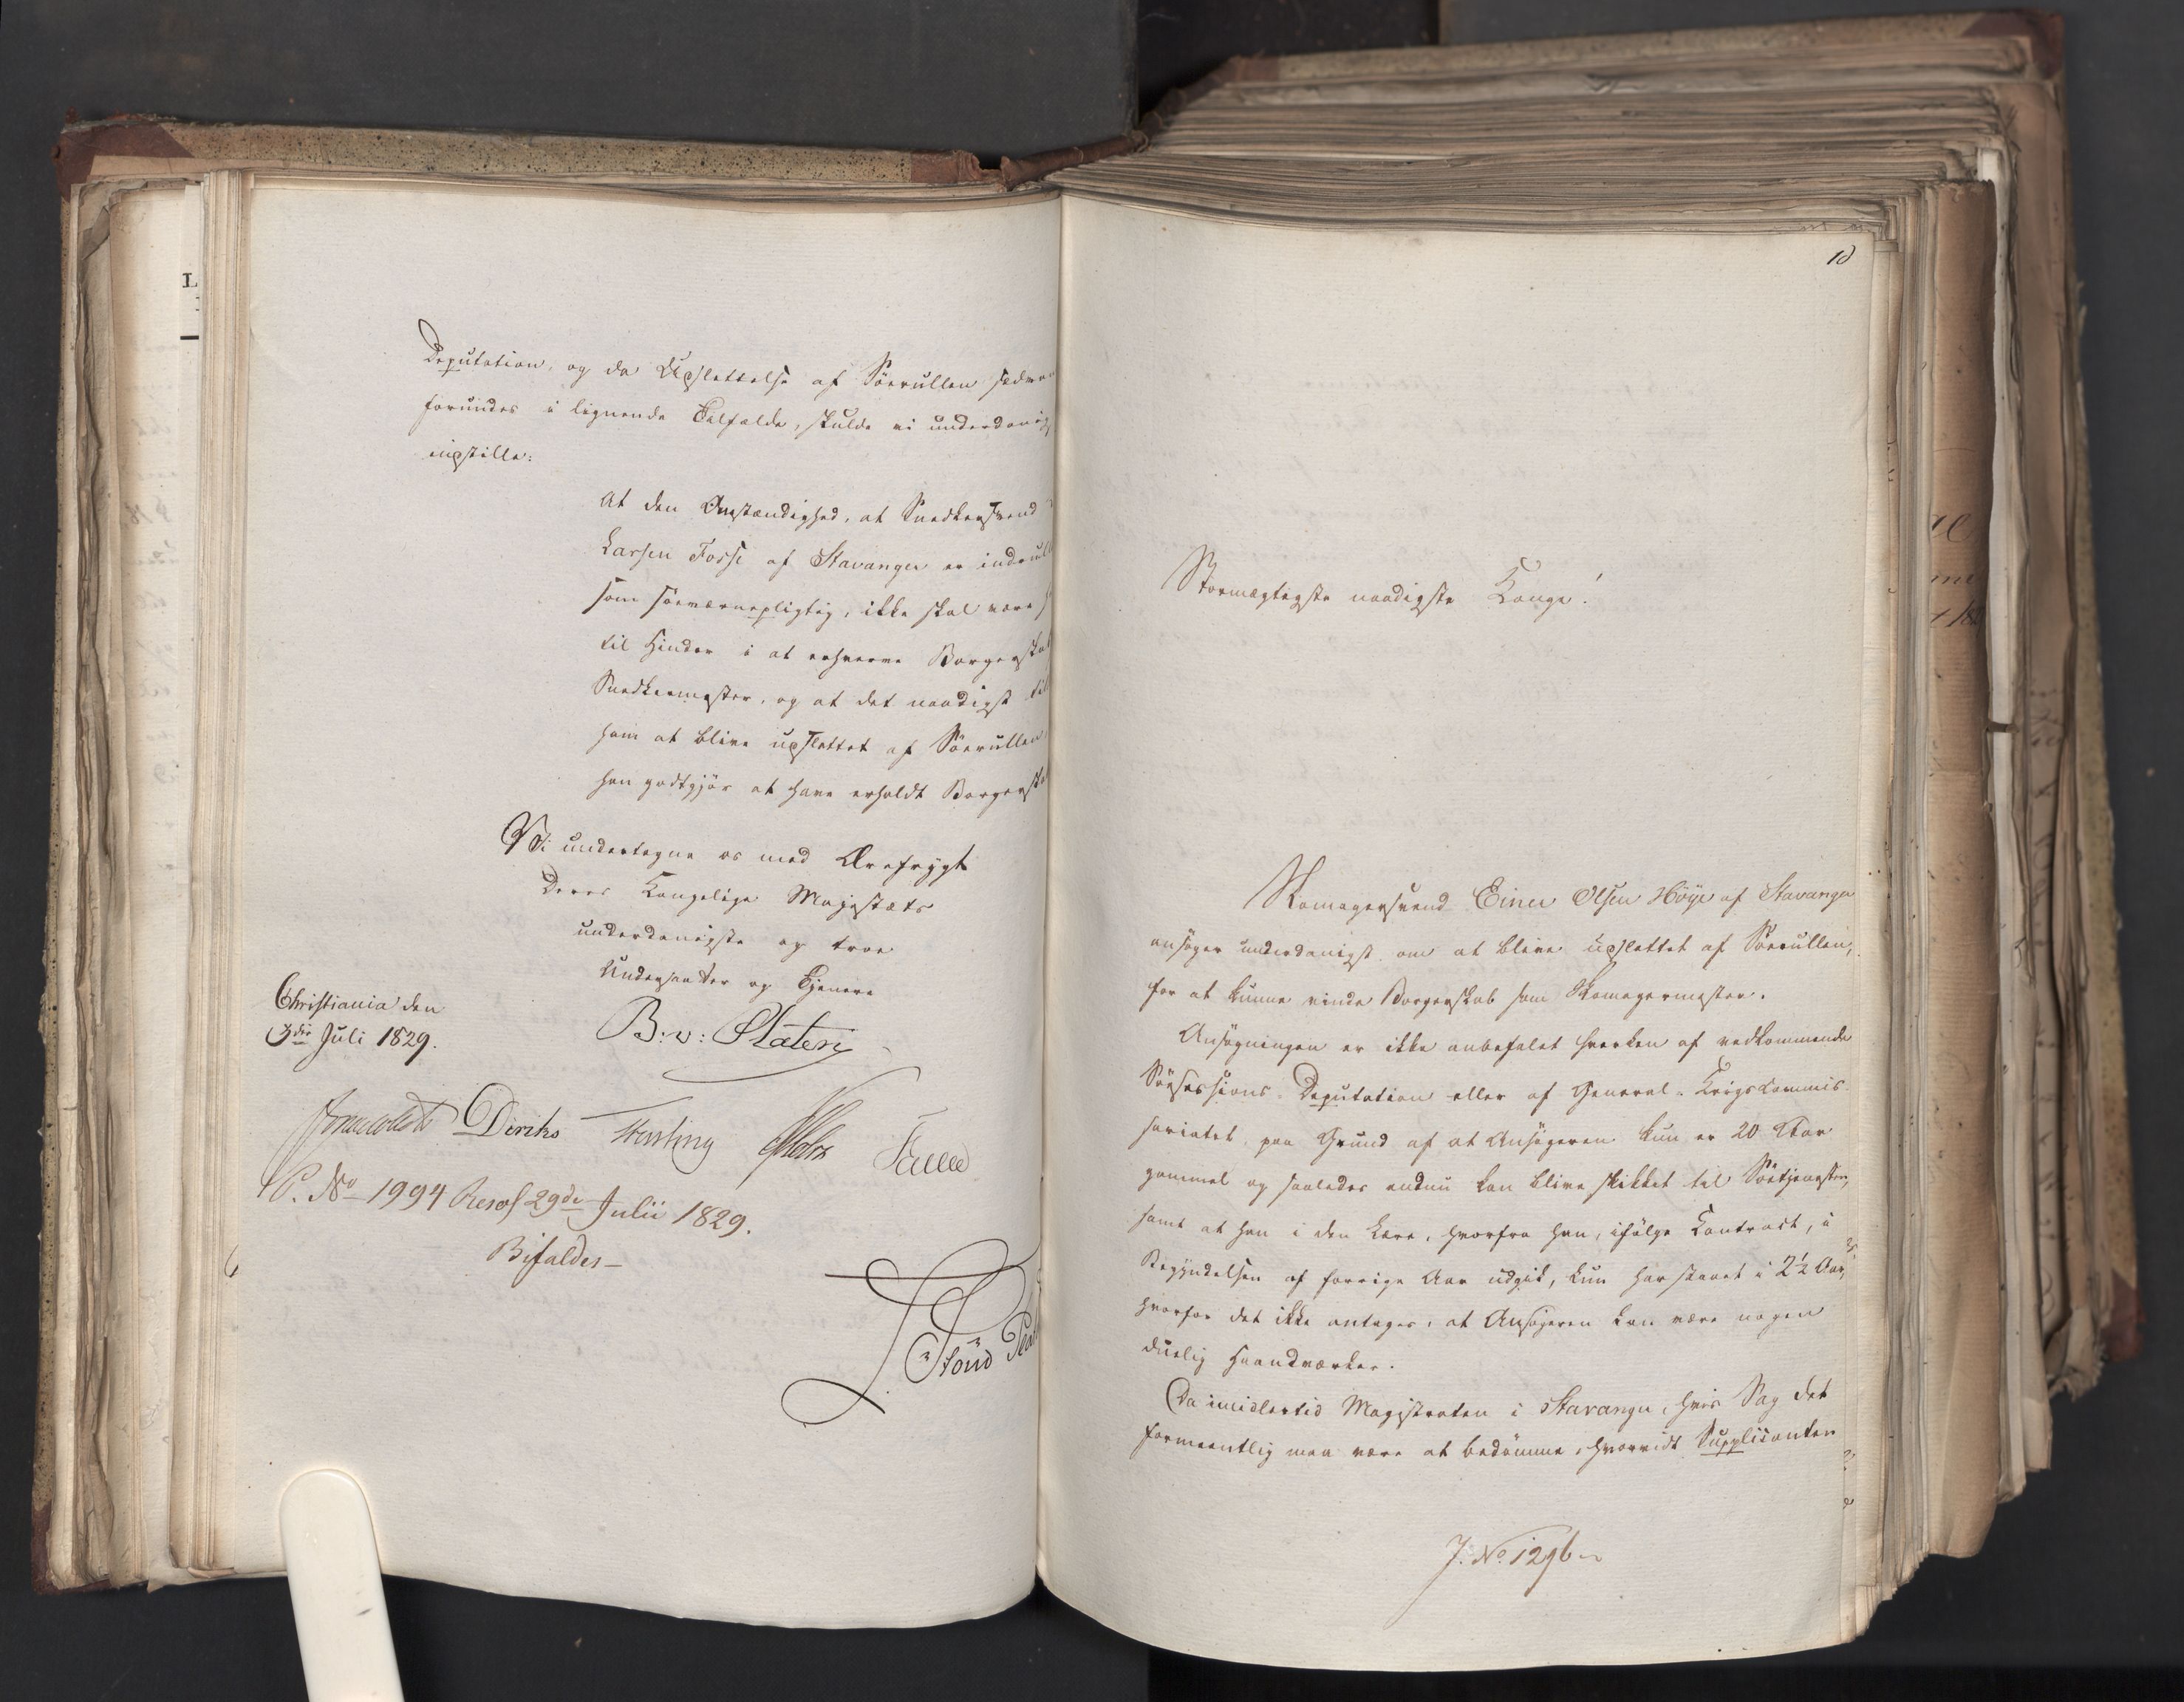 Deputation, og da Udslettelse af Søerullen sædvan
forundes i lignende Tilfælde, skulde vi underdanigst
indstille:
At den Omstændighed, at Snedkersvend
Larsen Fosse af Stavanger er indrull
som søeværnepligtig, ikke skal være h
til Hinder i at erhverve Borgerskab
Snedkermester, og at det naadigst till
ham at blive udslettet af Søerullen
han godtgjør at have erholdt Borgerska
Vi undertegne os med Ærefrygt
Deres Kongelige Majestæts
underdanigste og troe
Undersaatter og Tjenere
Christiania den
3die Juli 1829.
B: v: Platen
J Collett Diriks Fasting Holst Fauc
P. No 1994 Resol 29de Julii 1829.
Bifaldes—
10
Stormægtigste naadigste Konge!
Skomagersvend Einer Olsen Höye af Stavanger
ansøger underdanigst om at blive udslettet af Søerullen,
for at kunne vinde Borgerskab som Skomagermester.
Ansøgningen er ikke anbefalet hverken af vedkommende
Søesessions-Deputation eller af General-Krigscommis-
sariatet paa Grund af at Ansøgeren kun er 20 Aar
gammel og saaledes endnu kan blive skikket til Søetjenesten,
samt at han i den Lære, hvorfra han, ifølge Contract, i
Begyndelsen af forrige Aar udgik, kun har staaet i 2½ Aar,
hvorfor det ikke antages, at Ansøgeren kan være nogen
duelig Haandværker.
Da imidlertid Magistraten i Stavanger, hvis Sag det
formeentlig maa være at bedømme, hvorvidt Supplicanten
J. No. 1296